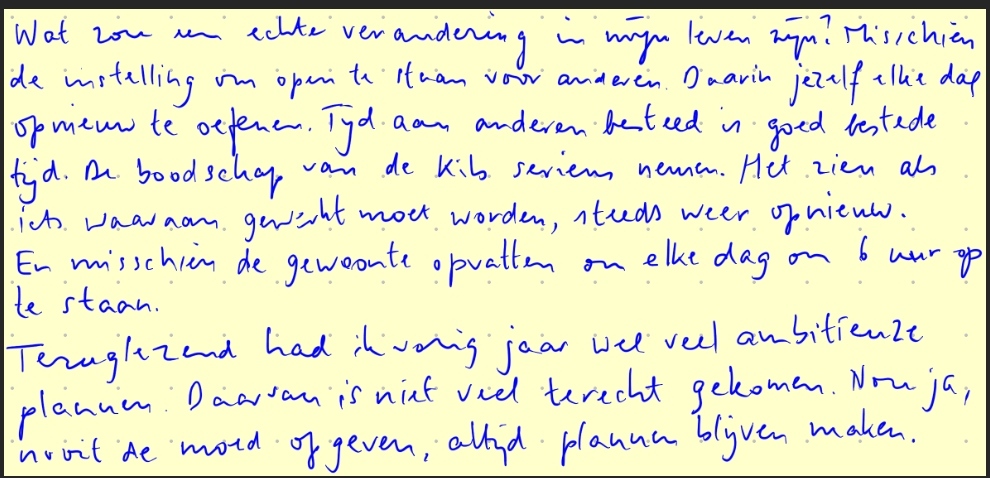 Wat zou een echte verandering in mijn leven zijn? Misschien
de instelling om open te staan voor anderen. Daarin jezelf elke dag
opnieuw te oefenen. Tijd aan anderen besteed is goed bestede
tijd. De boodschap van de Kils serieus nemen. Het zien als
iets waaraan gewerkt moet worden, steeds weer opnieuw.
En misschien de gewoonte opvatten om elke dag om 6 uur op
te staan.
Teruglezend had ik vorig jaar wel veel ambitieuze
plannen. Daarvan is niet veel terecht gekomen. Nou ja,
nooit de moed opgeven, altijd plannen blijven maken.